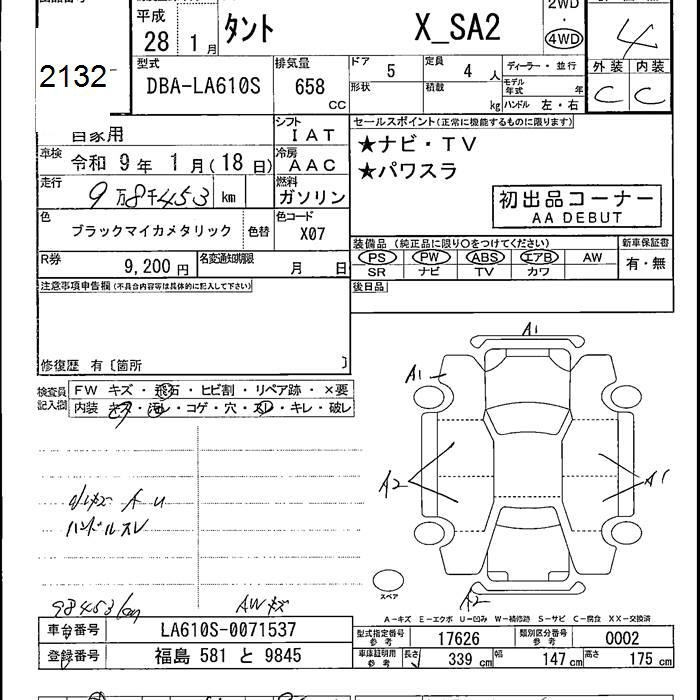 平成
28 1月
タント
X_SA2
2WD
・
4WD
4
2132
型式
DBA-LA610S
排気量
658
CC
ドア
5
定員
4 人
形状
積載
kg
ディーラー・並行
モデル年式 年
ハンドル 左・右
外装 内装
C C
自家用
シフト
IAT
車検
令和 9年 1月(18日)
冷房
AAC
走行
9万8千453 km
燃料
ガソリン
色
ブラックマイカメタリック
色替
色コード
X07
R券
9,200円
名変通知期限
月 日
セールスポイント(正常に機能するものに限ります)
★ナビ・TV
★パワスラ
初出品コーナー
AA DEBUT
装備品 (純正品に限り○をつけてください)
PS PW ABS エアB AW
SR ナビ TV カワ
新車保証書
有・無
後日品
注意事項申告欄(不具合内容等は具体的に記入して下さい)
修復歴 有〔箇所 〕
検査員記入欄
FW キズ・飛石・ヒビ割・リペア跡・×要
内装 キズ・汚レ・コゲ・穴・スレ・キレ・破レ
小キズ A U
ハンドルスレ
98453km
AWキズ
A1
A1
A2
A1
A2
スペア
A-キズ E-エクボ U-凹み W-補修跡 S-サビ C-腐食 XX-交換済
車台番号
LA610S-0071537
登録番号
福島 581 と 9845
型式指定番号 参考
17626
類別区分番号 参考
0002
車庫証明用 参考
長さ 339 cm
幅 147 cm
高さ 175 cm